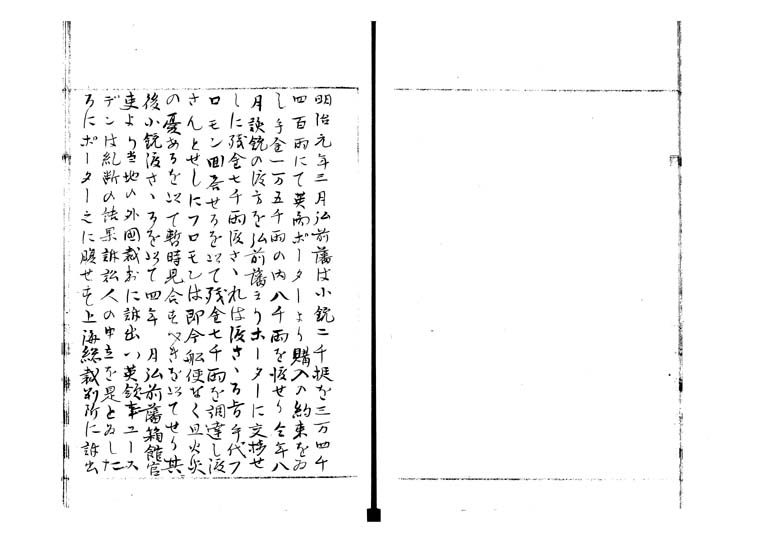 明治元年三月弘前藩は小銃二千挺を三万四千
四百両にて英商ポーターより購入の約束をゐ
し手金一万五千両の内八千両を渡せり仝年八
月談銃の渡方を弘前藩ヨりホーターに交捗せ
しに残金七千両渡さゝれは渡さゝる旨手代フ
ロモン回答せるを以て残金七千両を調達し渡
さんとせしにフロモンは即今船便なく且火災
の憂あるを以て暫時見合すへきを以てせり其
後小銃渡さゝるを以て四年 月弘前藩箱館官
吏より当地の外国裁判に訴出つ英領事ユース
デンは糺断の結果訴訟人の申立を是とゐした
るにポーター之に服せす上海総裁判所に訴出